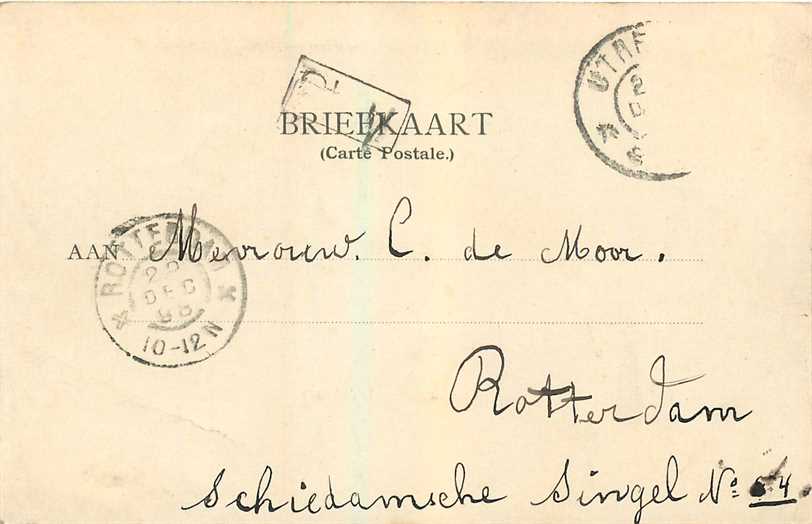 UTRE
BRIEFKAART
(Carte Postale.)
AAN Mevrouw. C. de Moor.
ROTTERDAM
DEC
10-12N
Rotterdam
Schiedamsche Singel No